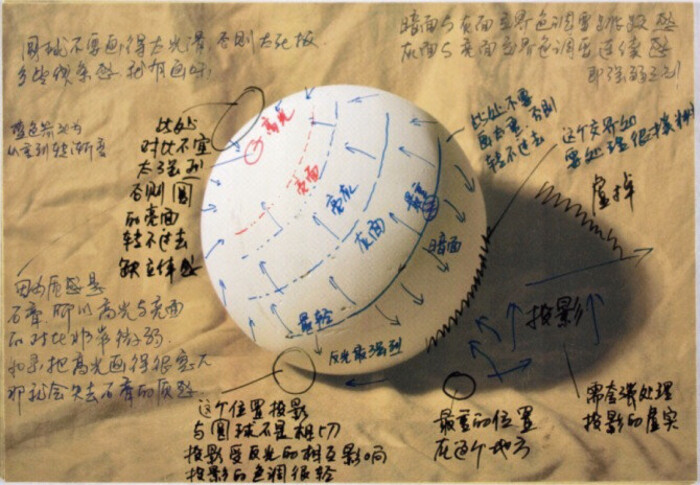 圆球不要画得太光滑,否则太死板
多些线条感,就有画味,
暗面与灰面交界色调要
灰面与亮面交界色调要连续感
即强弱
蓝色箭头为
从重到轻渐变
此处
对比不宜
太强烈
否则圆
的亮面
转不过去
缺立体感
高光
亮面
亮灰
灰面
最重
暗面
最轻
反光最强烈
此处不要
画太重,否则
转不过去
这个交界处
要处理得很模糊
虚掉
投影
因为质感是
石膏,所以高光与亮面
的对比非常微弱
如果把高光画得很亮
那就会失去石膏的质感
这个位置投影
与圆球不是相切
投影受反光的相互影响
投影的色调很轻
最重的位置
在这个地方
需套强处理
投影的虚实